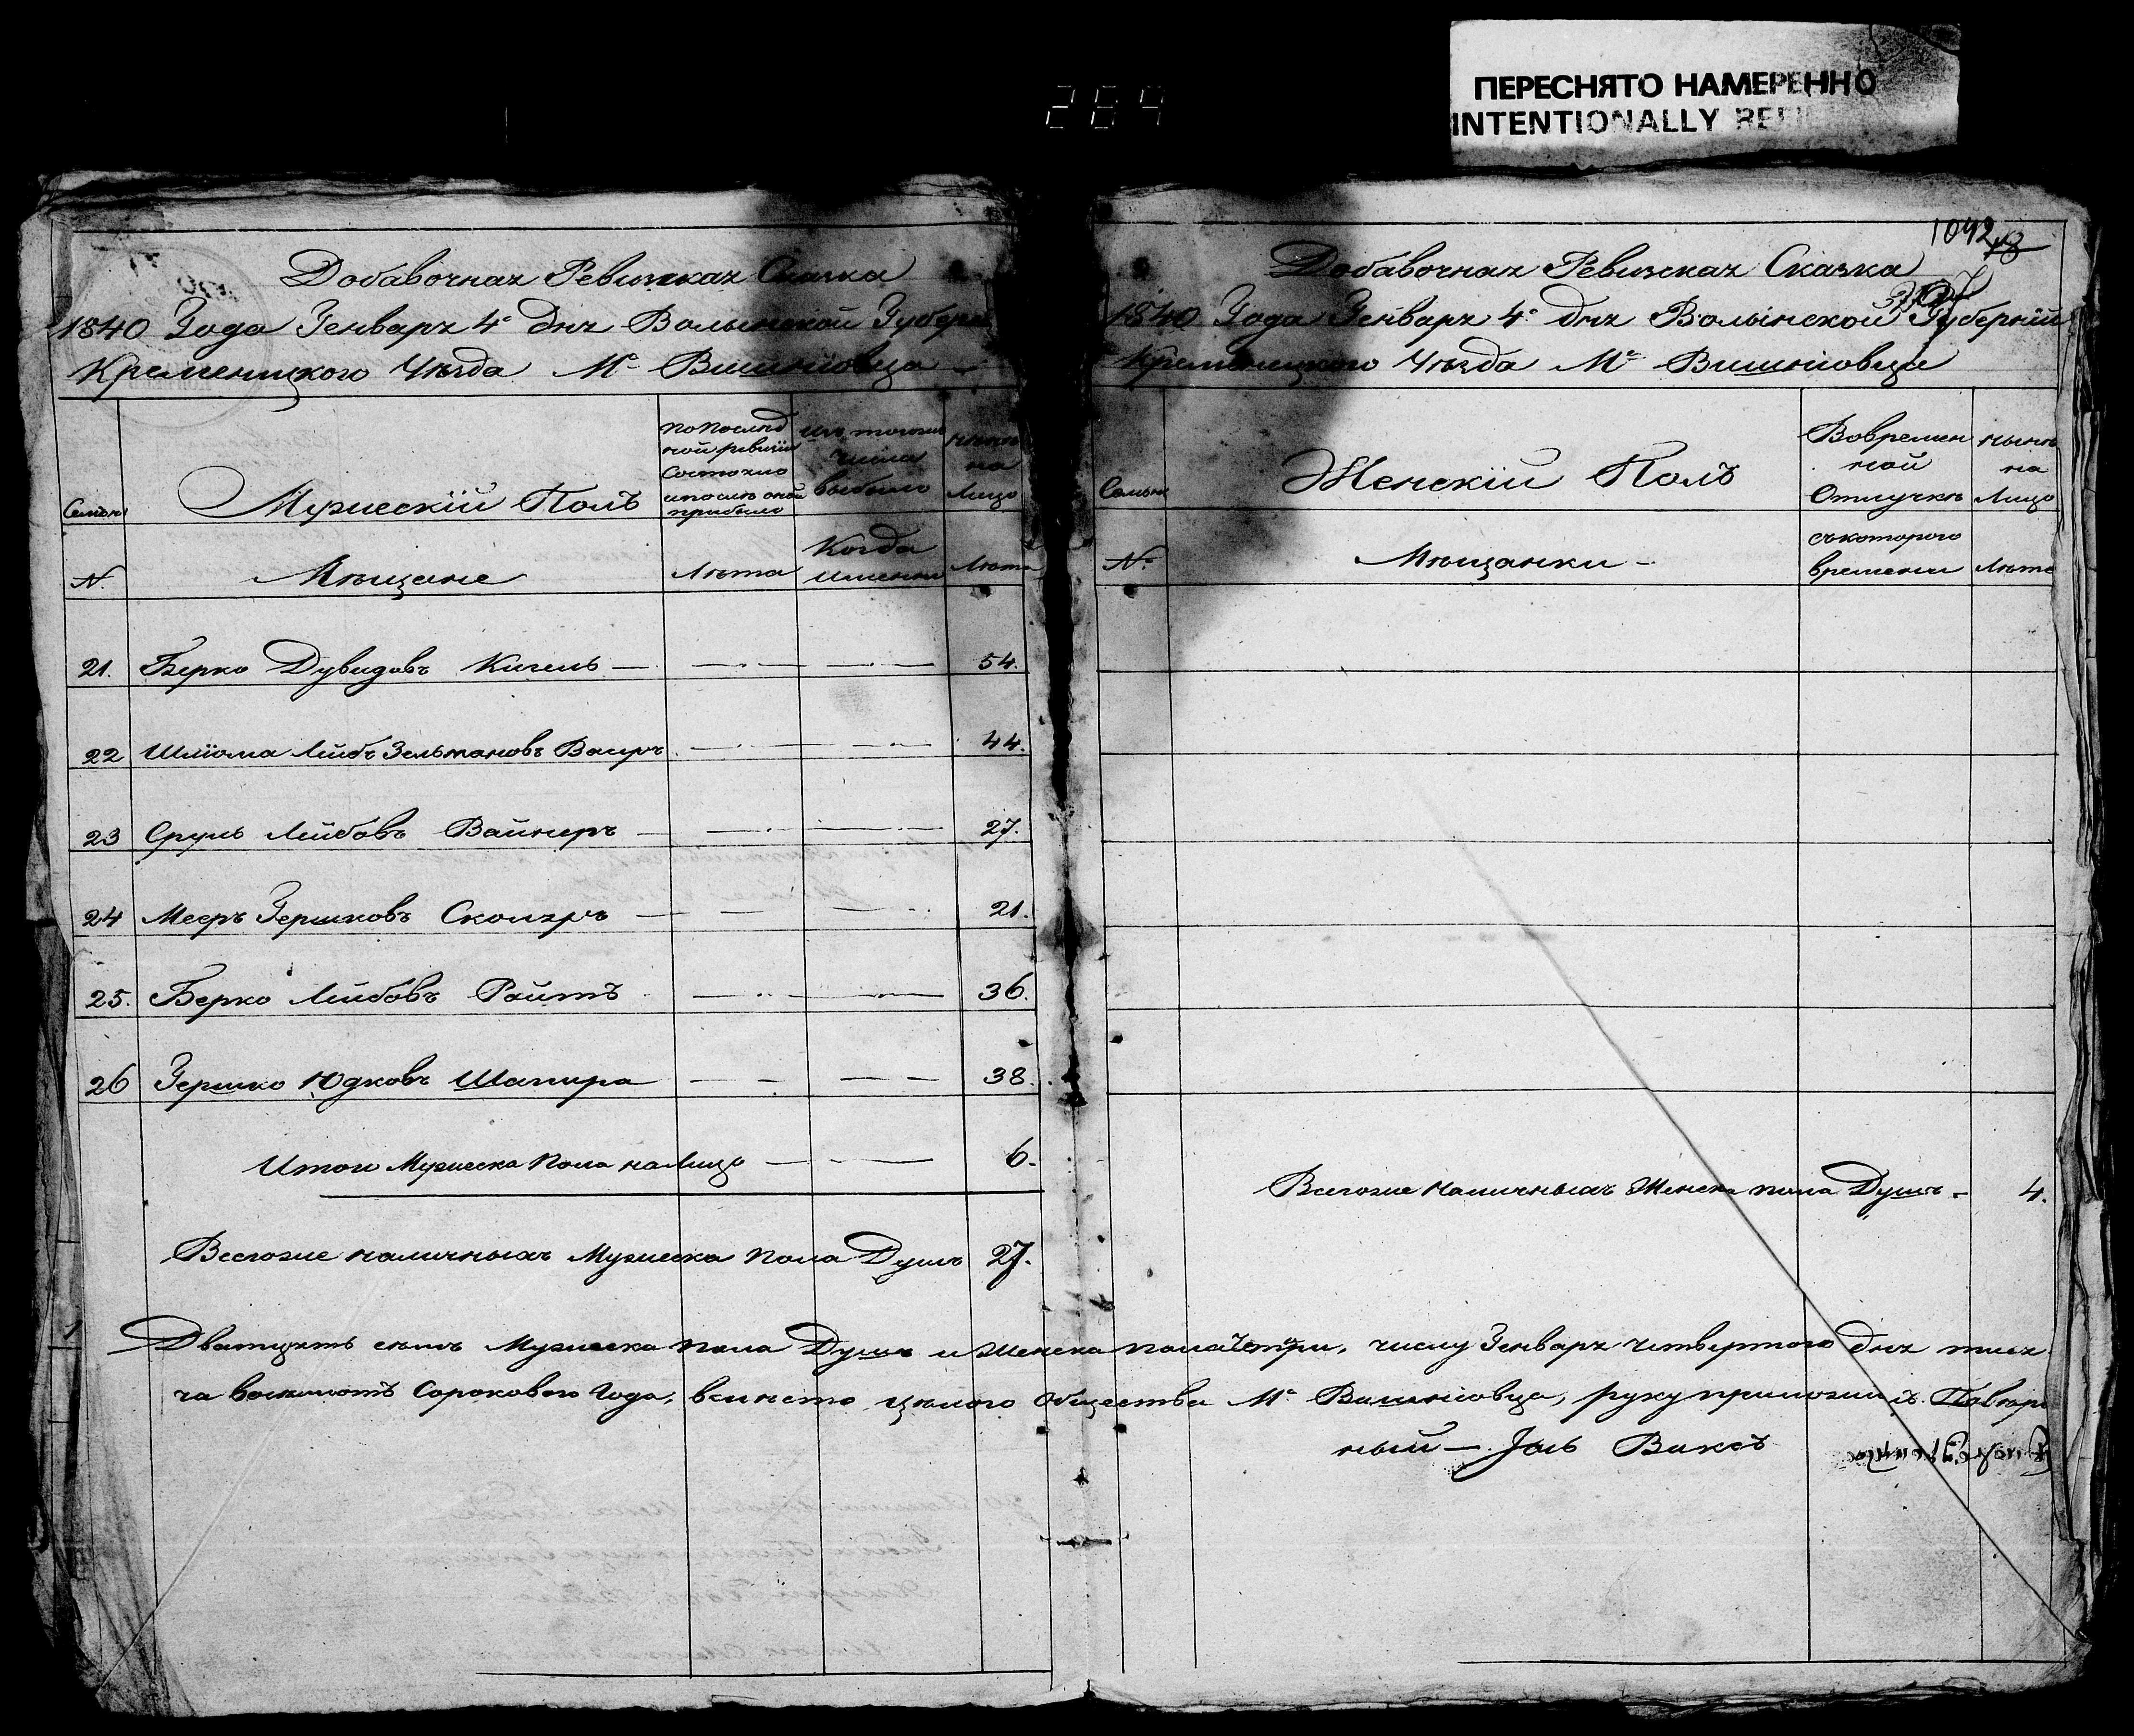 284
ПЕРЕСНЯТО НАМЕРЕННО
INTENTIONALLY
Добавочная Ревизская Сказка
1840 Года Генваря 4º дня Волынской Губерн
Кременицкого Уѣзда Мº Вишніовца
Семьи
Мужескій Полъ
по послѣд
ной ревизіи
состояло
и послѣ оной
прибыло
Изъ того
числа
выбыло
нынѣ
на
Лицо
N.
Мѣщане
Лѣта
Когда
именно
Лѣта
21. Берко Дувидовъ Кигель — 54.
22 Шліома Лейбъ Зельмановъ 44.
23 Сруль Лейбовъ Вайнеръ — 27.
24 Мееръ Гершковъ Сколяръ — 21.
25. Берко Лейбовъ Ройтъ 36.
26 Гершко Юдковъ Шапира 38.
Итого Мужеска Пола на Лицо — 6.
Всегоже наличныхъ Мужеска пола Душъ 27.
1042
Добавочная Ревизская Сказка
1840 Года Генваря 4º дня Волынской Губерніи
Кременицкого Уѣзда Мº Вишніовца
Семьи
Женскій Полъ
Вовремен
ной
Отлучкѣ
нынѣ
на
Лицо
N.º
Мѣщанки —
съкоторого
времени
Лѣта
Всегоже наличныхъ Женска пола Душъ — 4.
Дватцеть семъ Мужеска пола Душъ и Женска пола Четыри, числу Генваря четвертого дня тися
ча восемсотъ Сорокового Года, вмѣсто цѣлого Общества Мº Вишніовца, руку приложилъ Повѣре
ный — Іоль Виксъ